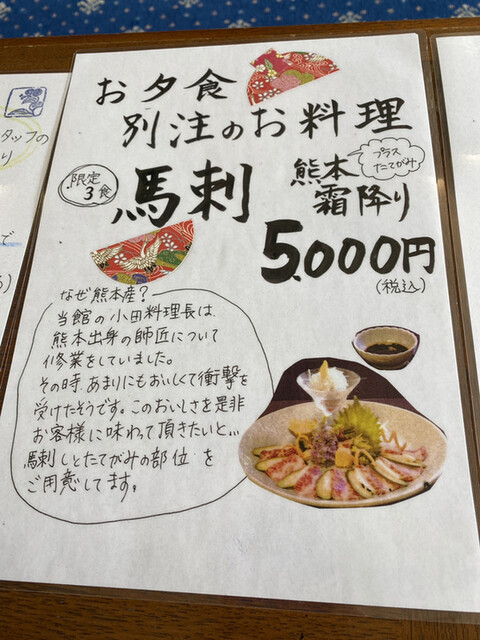 お夕食
別注のお料理
限定
3食
馬刺
熊本
プラス
たてがみ
霜降り
5,000円
(税込)
なぜ熊本産?
当館の小田料理長は、
熊本出身の師匠について
修業をしていました。
その時、あまりにもおいしくて衝撃を
受けたそうです。このおいしさを是非
お客様に味わって頂きたいと…
馬刺しとたてがみの部位を
ご用意してます。
タッフの
り
で